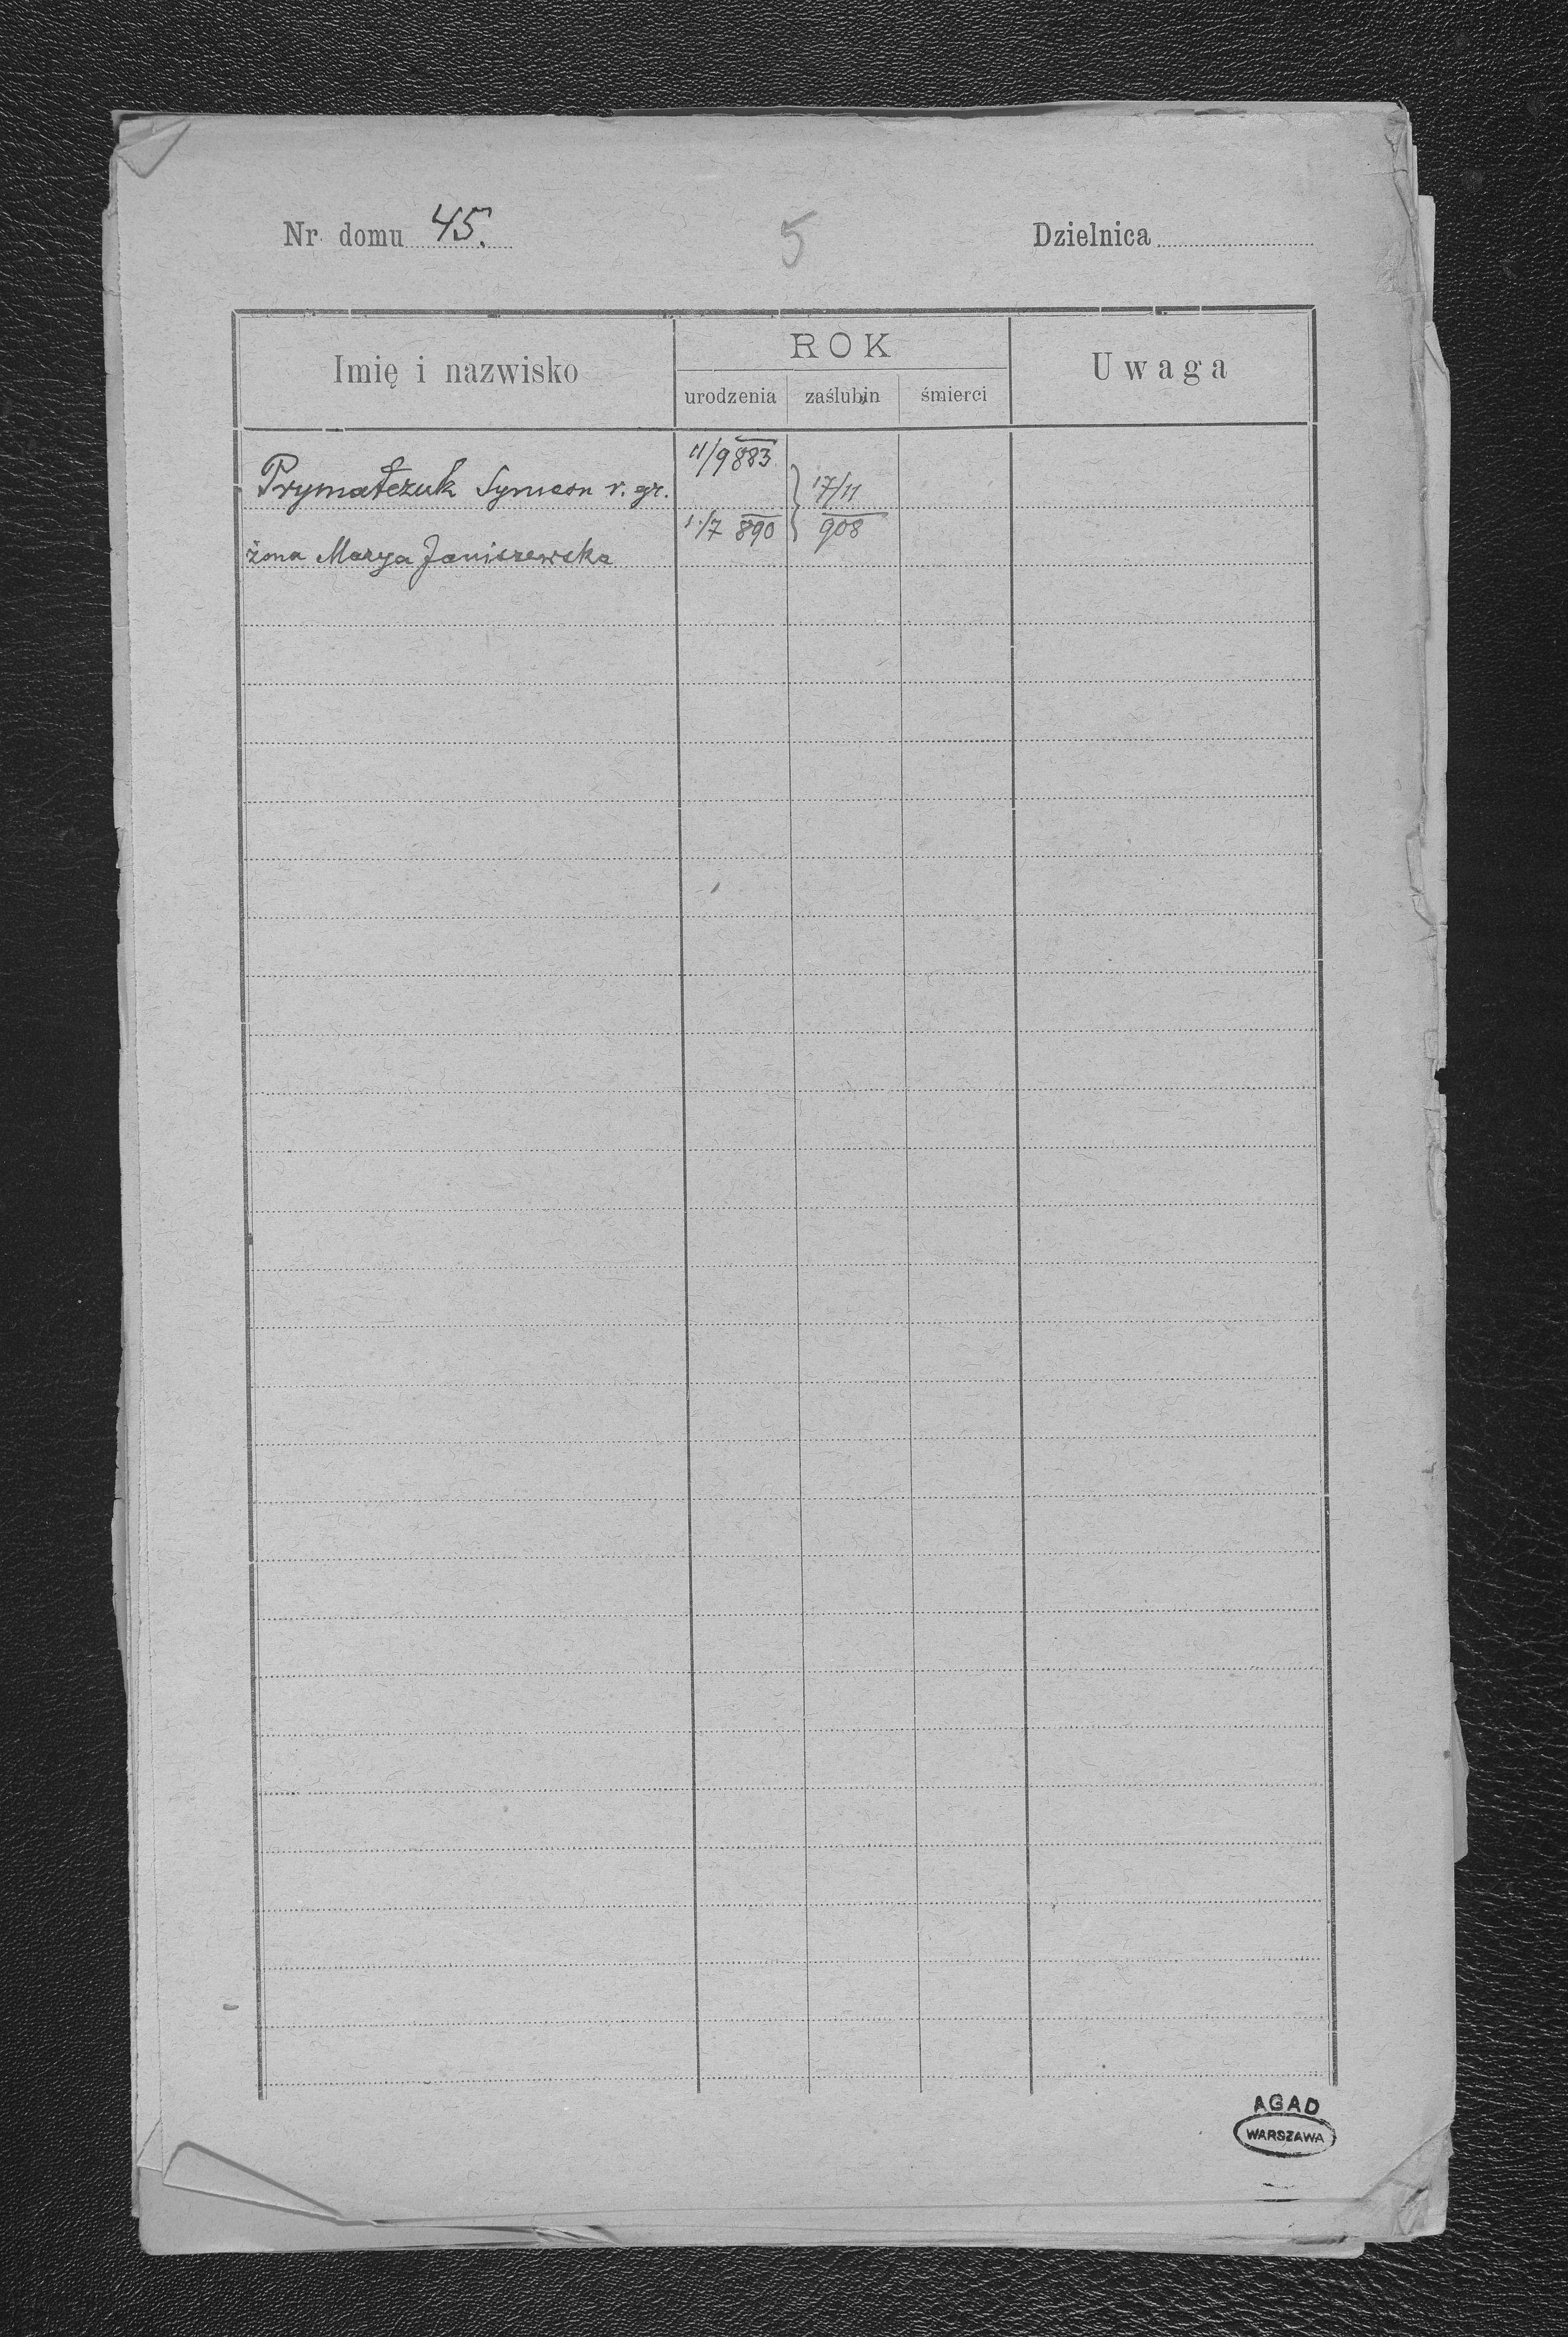 Nr domu 45.
5
Dzielnica
Imię i nazwisko
ROK
Uwaga
urodzenia
zaślubin
śmierci
11/9 883
Prymatczuk Symeon r. gr.
17/11
1/7 890
908
żona Marya Janiszewska
AGAD
WARSZAWA